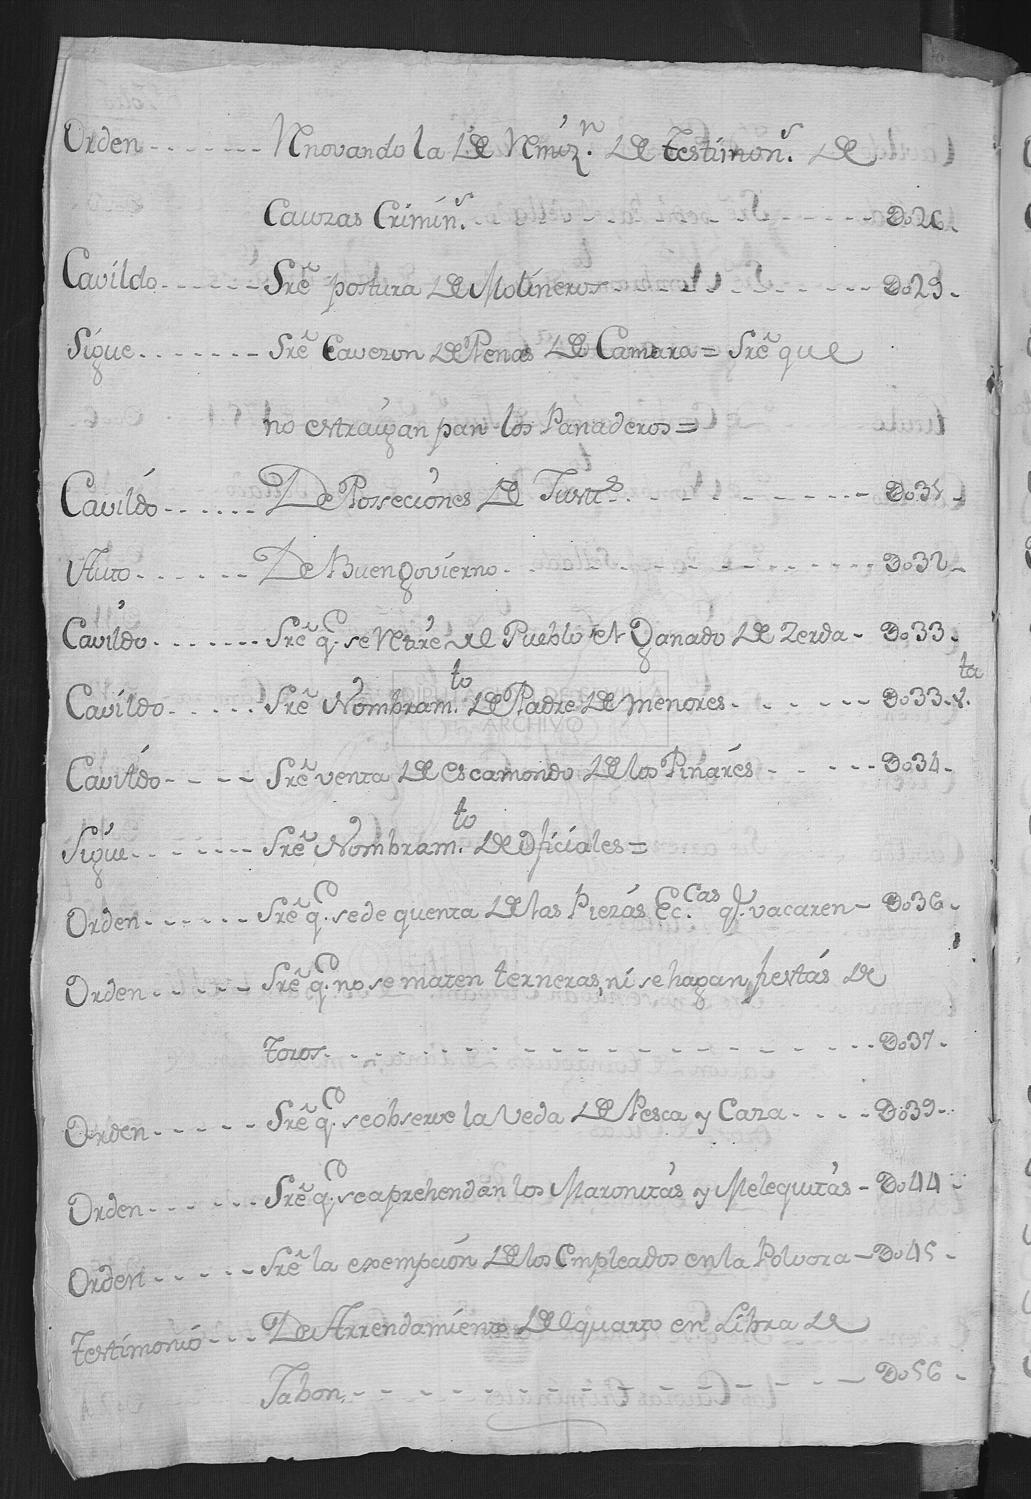 Orden - - - - - - - Renovando la de Remiz.n de Testimon.s de
Cauzas Crimin.s - - - - - - - - - - - - - Do26.
Cavildo - - - - - - Sre postura de Molineros - - - - - - - - Do29.
Sigue - - - - - - - Sre Cavezon de Penas de Camara = Sre que
no estraigan pan los Panaderos =
Cavildo - - - - - - De Posseciones de Justs. - - - - - - - - - Do31.
Auto - - - - - - - De Buen govierno - - - - - - - - - - - - - Do32.
Cavildo - - - - - - - Sre q.e se Retire del Pueblo el Ganado de Zerda - Do33.
Cavildo - - - - - - Sre Nombram.to de Padre de menores - - - - - - Do33. v.ta
Cavildo - - - - - Sre venta de escamondo de los Pinares - - - - - Do34.
Sigue - - - - - - - Sre Nombram.to de Oficiales =
Orden - - - - - - Sre q.e se de quenta de las Piezas Ec.cas q.e vacaren - Do36.
Orden - - - - - - Sre q.e no se maten terneras, ni se hagan fiestas de
toros - - - - - - - - - - - - - - - - - - - - Do37.
Orden - - - - - - Sre q.e se observe la veda de Pesca y Caza - - - - Do39.
Orden - - - - - - Sre q.e se aprehendan los Maronitas y Melequitas - Do44.
Orden - - - - - - Sre la exempcion de los Empleados en la Polvora - Do45.
Testimonio - - - De Arrendamiento del quarto en Libra de
Jabon. - - - - - - - - - - - - - - - - - - - Do56.
ARCHIVO